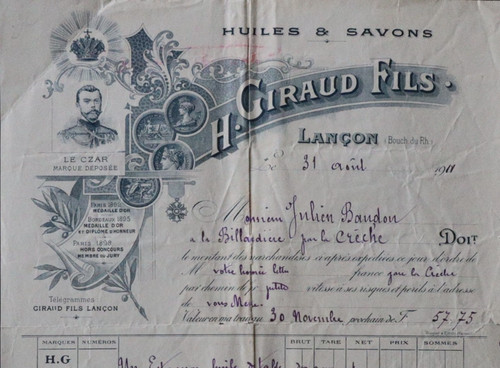 HUILES & SAVONS
H. GIRAUD FILS.
LANÇON (Bouch. du Rh.)
LE 31 août 1911
LE CZAR
MARQUE DÉPOSÉE
Monsieur Julien Baudon
à la Billardière par la Crèche DOIT
le montant des marchandises ci-après expédiées ce jour d'ordre de
M votre honorée lettre franco gare la Crèche
par chemin de fer petite vitesse à ses risques et périls à l'adresse
de vous même.
Valeur en ma traite au 30 Novembre prochain de F. 57.75
PARIS
MÉDAILLE D'OR
BORDEAUX 1895
MÉDAILLE D'OR
ET DIPLÔME D'HONNEUR
PARIS
HORS CONCOURS
MEMBRE DU JURY
Télégrammes
GIRAUD FILS LANÇON
MARQUES NUMÉROS BRUT TARE NET PRIX SOMMES
H.G